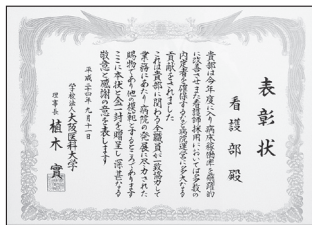 表彰状
看護部殿
貴部は今年度に入り病床稼働率を飛躍的
に改善させまた看護師採用においては多数の
内定者を確保するなど病院運営に多大なる
貢献をされました
これは貴部に関わる全職員が一致協力して
業務にあたり病院の発展に尽力された
賜物であり他の模範とするところであります
ここに本状と金一封を贈呈し深甚なる
敬意と感謝の意を表します
平成二十四年九月十一日
学校法人大阪医科大学
理事長 植木實